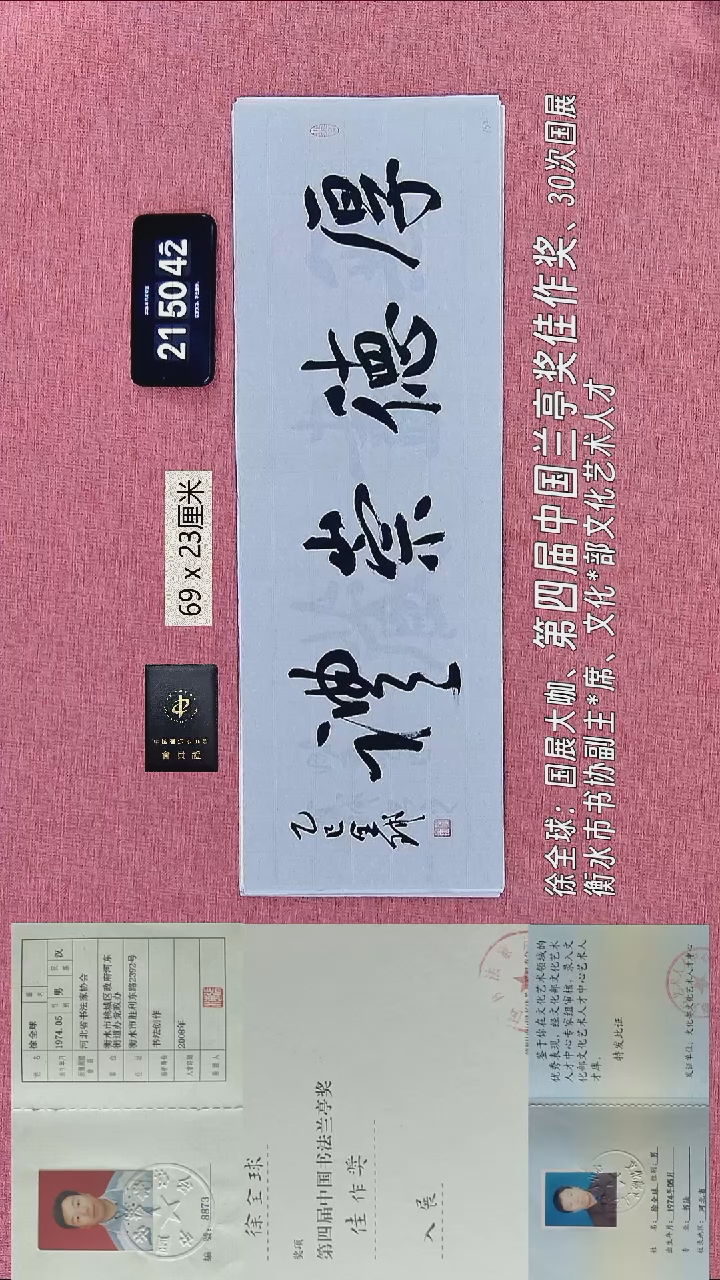 徐全球
1974.05
男
汉
河北省书法家协会
衡水市桃城区政府河东
街道办党政办
衡水市胜利东路2292号
书法创作
2008年
编号: 8873
徐全球
奖项
第四届中国书法兰亭奖
佳作奖
入展
鉴于你在文化艺术领域的
优秀表现，经文化部文化艺术
人才中心专家组审核，录入文
化部文化艺术人才中心艺术人
才库。
特发此证
发证单位: 文化部文化艺术人才中心
姓名: 徐全球 性别: 男
出生年月: 1974年05月
专业: 书法
21 50 42
69 x 23厘米
厚德崇禮
乙巳全球
徐全球：国展大咖、第四届中国兰亭奖佳作奖、30次国展
衡水市书协副主*席、文化*部文化艺术人才